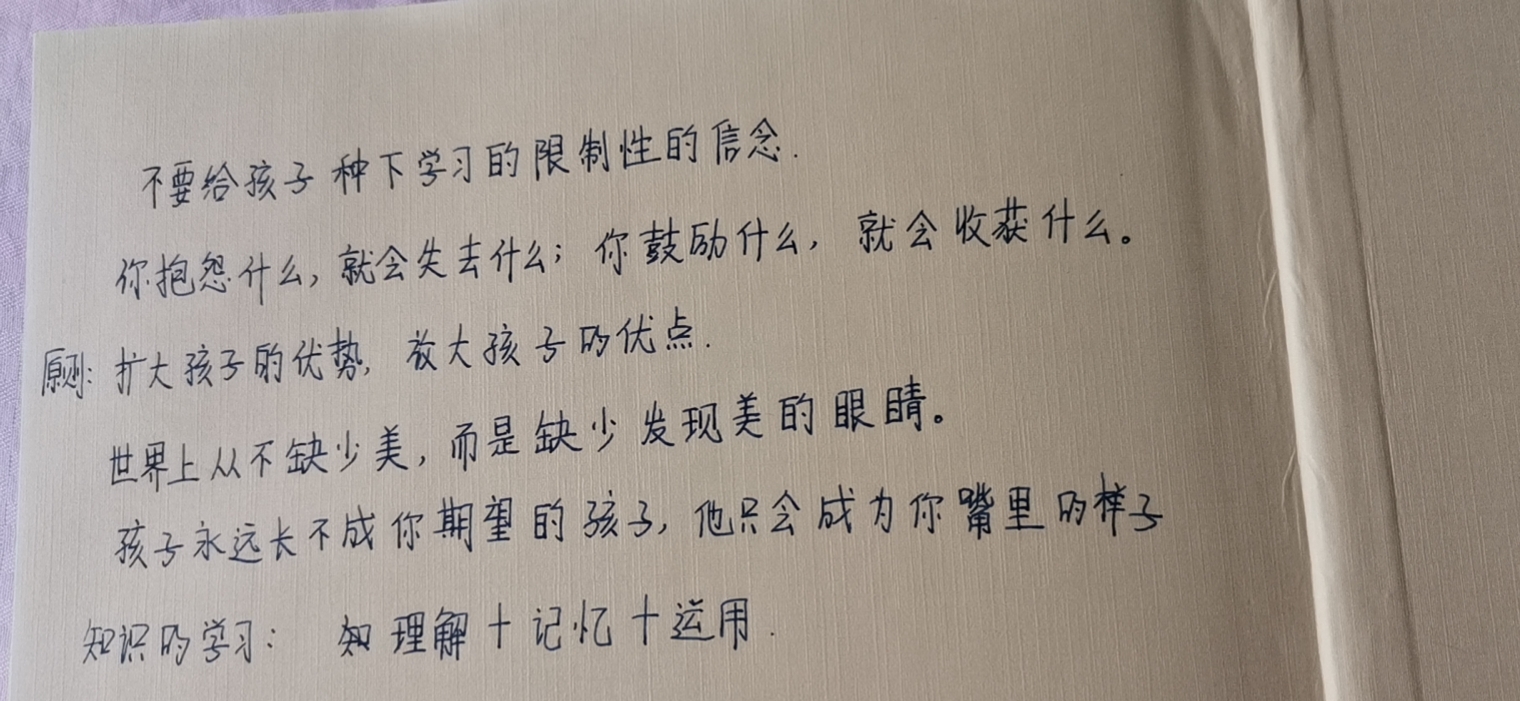 不要给孩子种下学习的限制性的信念.
你抱怨什么,就会失去什么;你鼓励什么,就会收获什么。
原则:扩大孩子的优势,放大孩子的优点.
世界上从不缺少美,而是缺少发现美的眼睛。
孩子永远长不成你期望的孩子,他只会成为你嘴里的样子
知识的学习: 理解+记忆+运用.